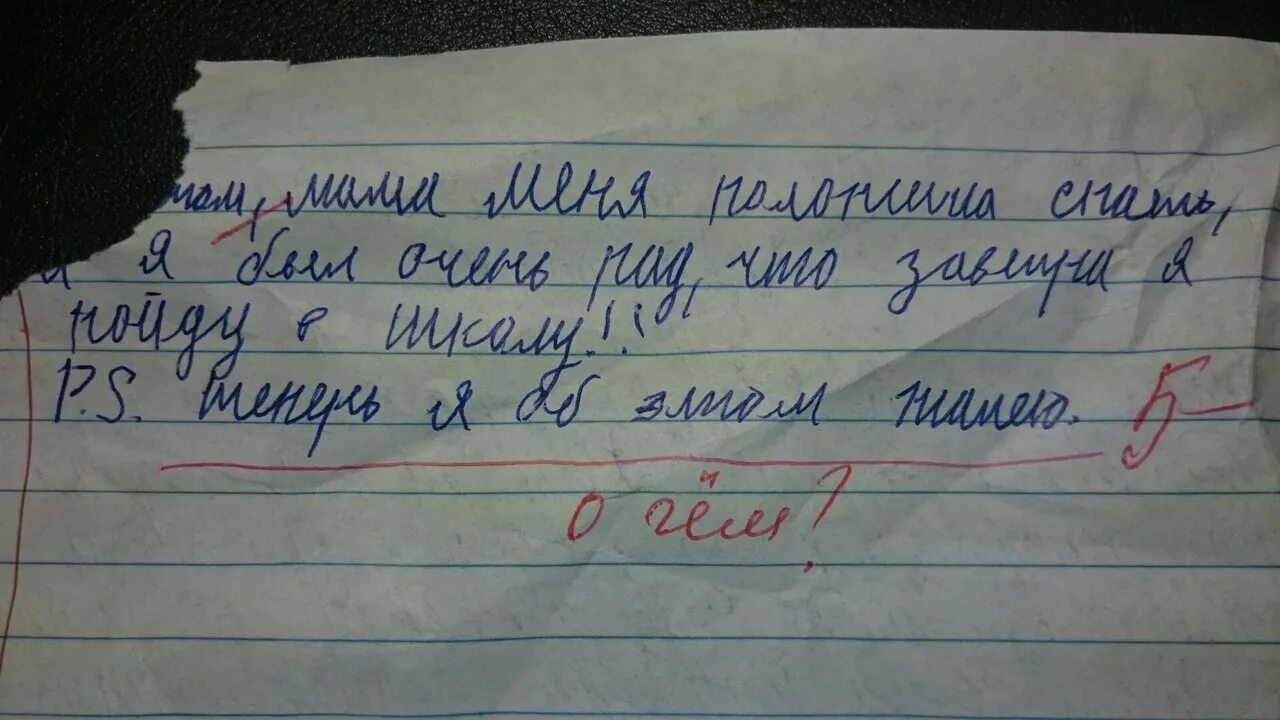 том, мама меня положила спать,
и я был очень рад, что завтра я
пойду в школу!!
P.S. теперь я об этом жалею. 5-
о чём?